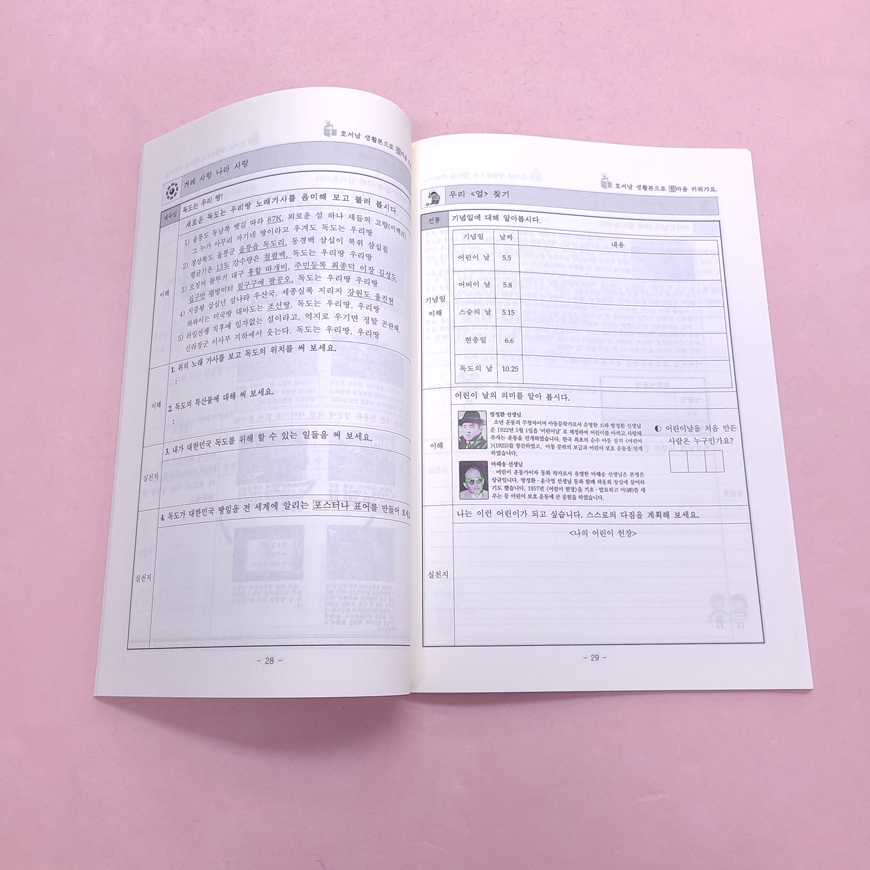 호서남 생활본으로
겨레 사랑 나라 사랑
애국심
독도는 우리 땅!
새로운 독도는 우리땅 노래가사를 음미해 보고 불러 봅시다.
1) 울릉도 동남쪽 뱃길 따라 87K, 외로운 섬 하나 새들의 고향(이백리)
그 누가 아무리 자기네 땅이라고 우겨도 독도는 우리땅
2) 경상북도 울릉군 울릉읍 독도리, 동경백 삼십이 북위 삼십칠
평균기온 13도 강수량은 천팔백, 독도는 우리땅 우리땅
3) 오징어 꼴뚜기 대구 홍합 따개비, 주민등록 최종덕 이장 김성도
십구만 평방미터 칠구구에 팔공오, 독도는 우리땅 우리땅
4) 지증왕 십삼년 섬나라 우산국, 세종실록 지리지 강원도 울진현
하와이는 미국땅 대마도는 조선땅, 독도는 우리땅, 우리땅
5) 러일전쟁 직후에 임자없는 섬이라고, 억지로 우기면 정말 곤란해
신라장군 이사부 지하에서 웃는다, 독도는 우리땅, 우리땅
이해
1. 위의 노래 가사를 보고 독도의 위치를 써 보세요.
:
이해
2. 독도의 특산물에 대해 써 보세요.
:
실천지
3. 내가 대한민국 독도를 위해 할 수 있는 일들을 써 보세요.
실천지
4. 독도가 대한민국 땅임을 전 세계에 알리는 포스터나 표어를 만들어 보세
- 28 -
호서남 생활본으로 참마음 키워가요.
우리 <얼> 찾기
전통
기념일에 대해 알아봅시다.
기념일 날짜 내용
기념일
이해
어린이 날 5.5
어버이 날 5.8
스승의 날 5.15
현충일 6.6
독도의 날 10.25
어린이 날의 의미를 알아 봅시다.
이해
방정환 선생님
소년 운동의 주창자이며 아동문학가로서 유명한 소파 방정환 선생님
은 1922년 5월 1일을 '어린이날' 로 제정하여 어린이를 아끼고 사랑해
주자는 운동을 전개하였습니다. 한국 최초의 순수 아동 잡지 《어린이》
(1923)를 창간하였고, 아동 문학의 보급과 어린이 보호 운동을 전개
하였습니다.
마해송 선생님
어린이 운동가이자 동화 작가로서 유명한 마해송 선생님은 본명은
상규입니다. 방정환·윤극영 선생님 등과 함께 색동회 창립에 참여하
기도 했습니다. 1957년 《어린이 헌장》을 기초·발표하고
우는 등 어린이 보호 운동에 큰 공헌을 하였습니다.
어린이날을 처음 만든
사람은 누구인가요?
나는 이런 어린이가 되고 싶습니다. 스스로의 다짐을 계획해 보세요.
<나의 어린이 헌장>
실천지
- 29 -